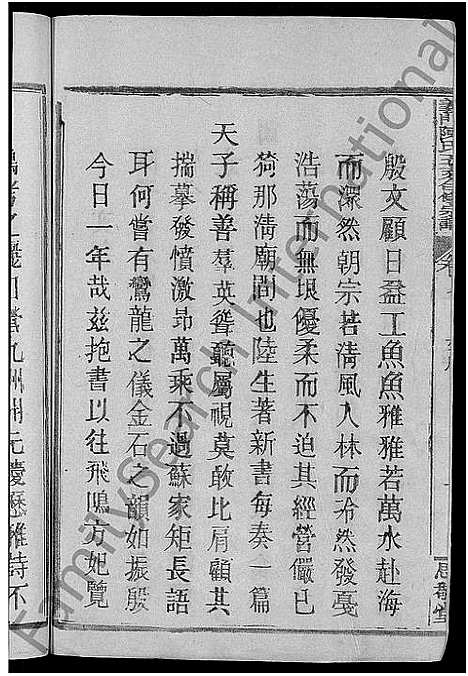 殷文顧日益工魚魚雅雅若萬水赴海
而深然朝宗若淸風入林而冷然發戞
浩蕩而無垠優柔而不迫其經營儼已
猗那淸廟間也陸生著新書每奏一篇
天子稱善羣英聳龥屬視莫敢比肩顧其
揣摹發憤激昻萬乘不過蘇家矩長語
耳何嘗有鸞龍之儀金石之韻如振殷
今日一年哉玆抱書以往飛鳴方妃覽
FamilySearch International